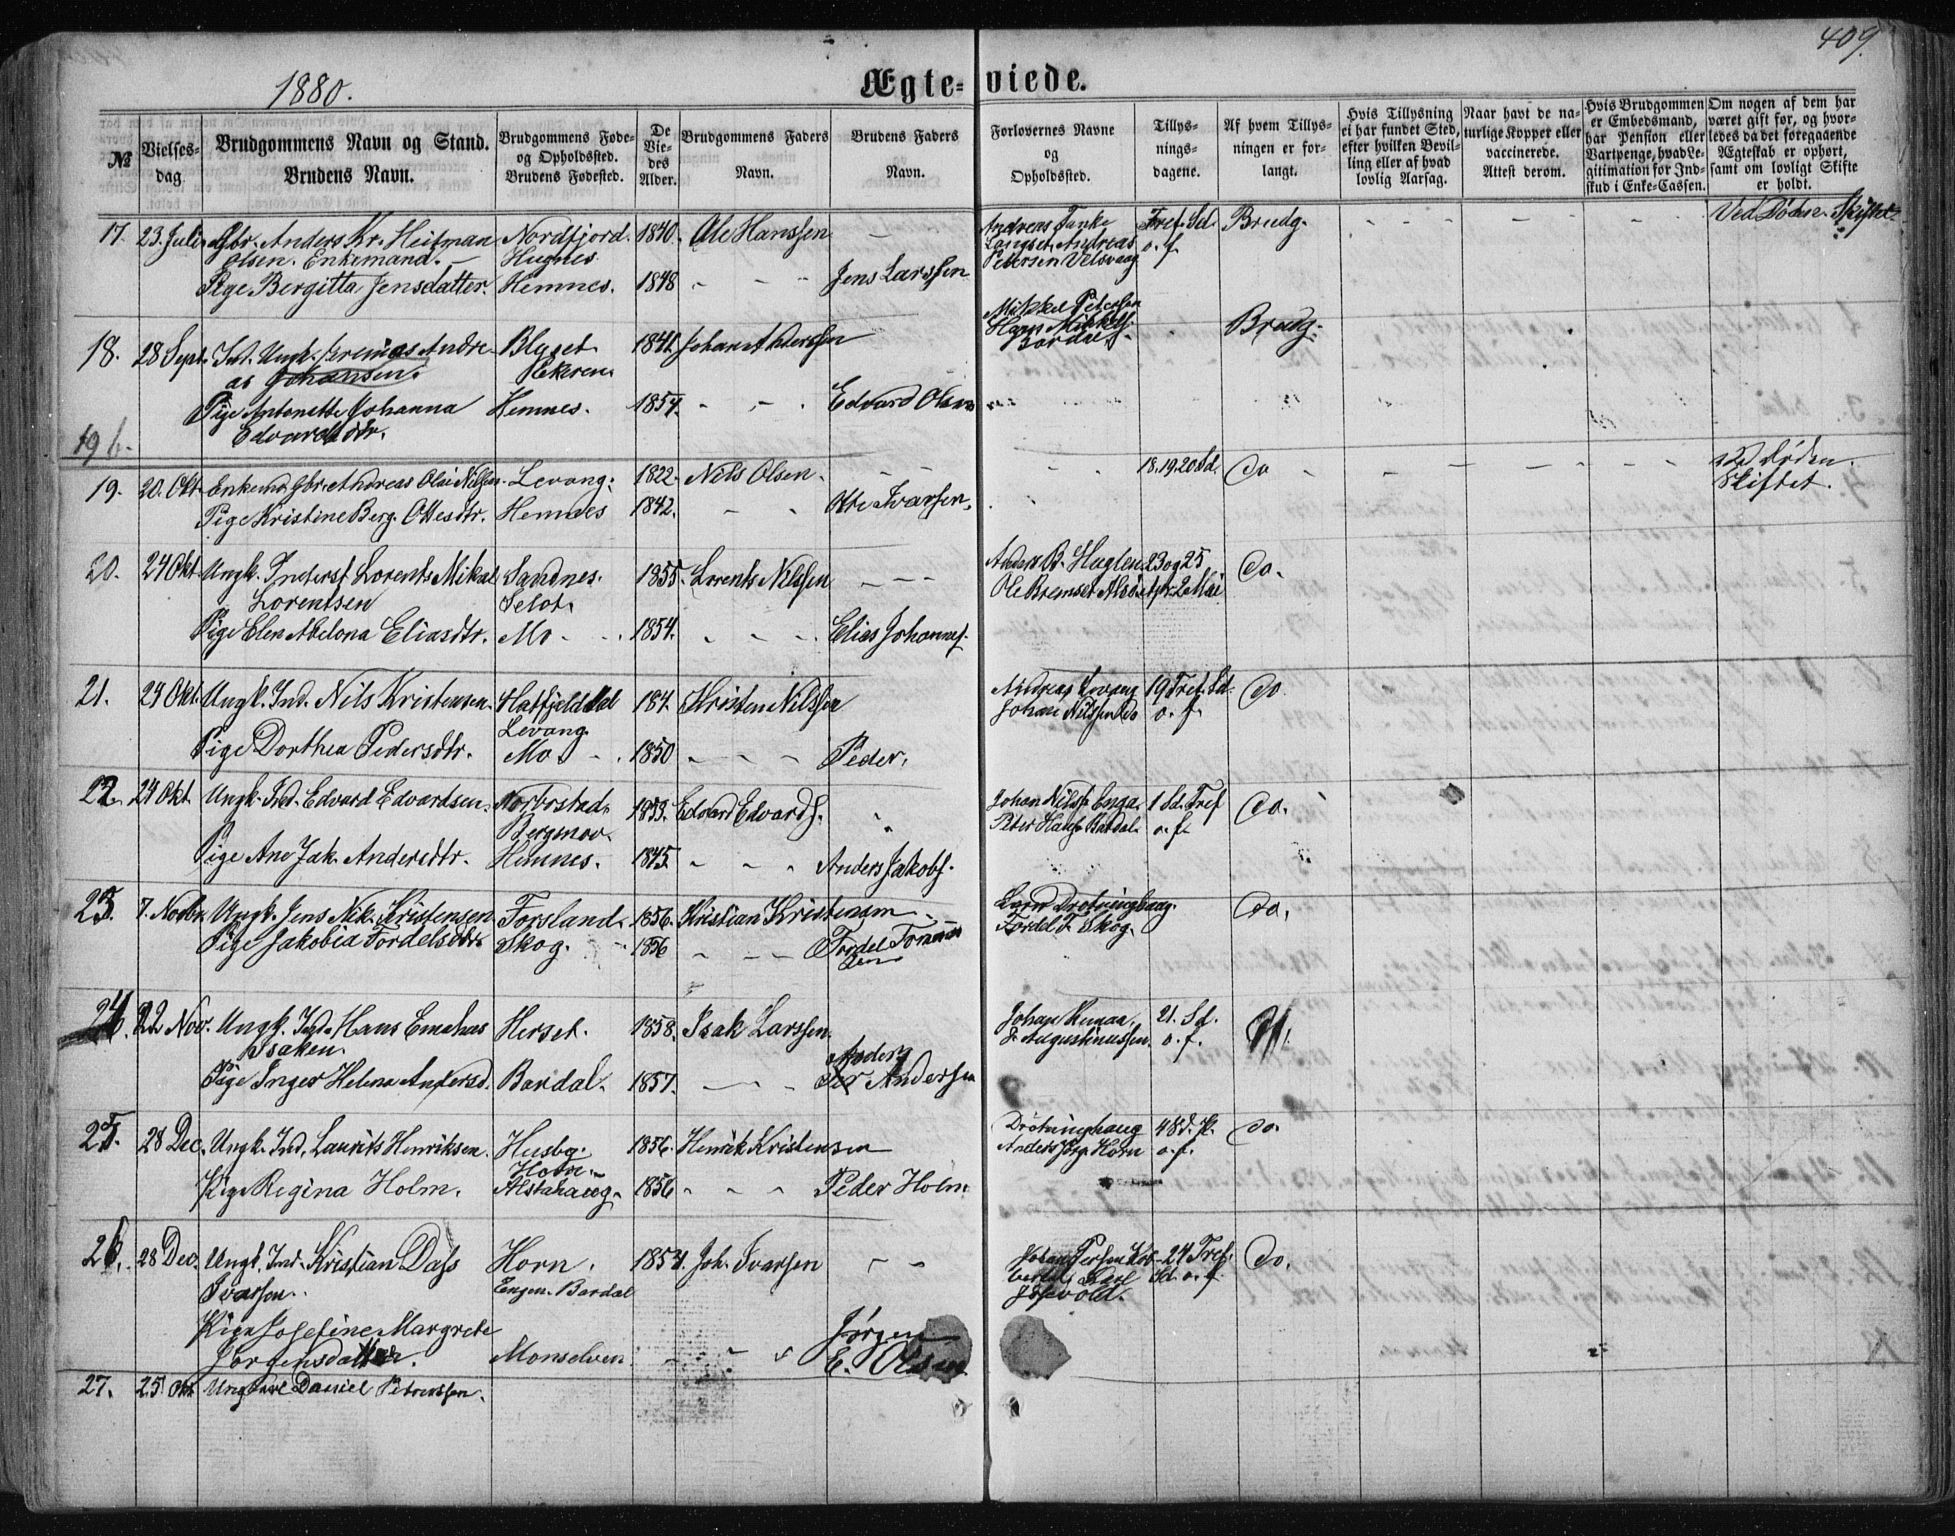 409.
1880.
Ægte-viede.
№
Vielses-dag.
Brudgommens Navn og Stand.
Brudens Navn.
Brudgommens Føde-
og Opholdssted.
Brudens Fødested.
De
Vie-
des
Alder.
Brudgommens Faders
Navn.
Brudens Faders
Navn.
Forlovernes Navne
og
Opholdssted.
Tillys-
nings-
dagene.
Af hvem Tillys-
ningen er for-
langt.
Hvis Tillysning
ei har fundet Sted,
efter hvilken Bevil-
ling eller af hvad
lovlig Aarsag.
Naar havt de na-
turlige Kopper eller
vaccinerede.
Attest derom.
Hvis Brudgommen
er Embedsmand,
har Pension eller
Vartpenge, hvad Le-
gitimation for Ind-
skud i Enke-Cassen.
Om nogen af dem har
været gift før, og hvor-
ledes da det foregaaende
Ægteskab er ophørt,
samt om lovligt Skifte
er holdt.
17. 23. Juli Gbr. Anders Kr. Heitman Nordfjord. 1840. Ole Hanssen - - Andreas Tanke Tref. Sd. Brudg. - - - - Ved Døden. Skiftet
Olsen. Enkemand. Hugnes Langset, Andreas o. f.
Pige Bergitta Jensdatter. Hemnes. 1848 - - - Jens Larssen Petersen Velsvaag
18. 28 Sept. Ind. Ungk. Andre- 1841. Mikkel Petersen Brudg.
as Johansen. Hans Mikkels.
Pige Antonette Johanna Hemnes. 1854. - - - Edvard Olsen
Edvardsdtr.
196.
19. 20. Okt. Enkemd. Gbr. Andreas Olai Nilsen. Levang. 1822. Nils Olsen. - - - - 18.19.20 Sd. Do - - - - - Ved Døden.
Pige Kristine Berg. Ottesdtr. Hemnes 1842. - - Otte Ivarsen. Skiftet.
20. 24 Okt. Ungk. Inderst Lorents Mikal Sandnes. 1855. Lorents Nilssen - - - Anders B. Huglen 23 og 25 Do.
Lorentsen Selot. Ole Bremset
Pige Elen Abelona Eliasdtr. Mo - - 1854. - - - Elias Johannes.
21. 24 Okt. Ungk. Ind. Nils Kristensen. Hatfjelddal 184. Kristen Nilssen Andreas Levang 19 Tref. Sd. Do.
Levang Johan Nilssen Do o. f.
Pige Dorthea Pedersdtr. Mo - - 1850 - - - Peder.
22. 24 Okt. Ungk. Ind. Edvard Edvardsen. 1853. Edvard Edvards. Johan Nilss. Enga. 1 Sd. Tref Do.
Peter Hans. Bardal o. f.
Pige Ane Jak. Andersdtr. Hemnes. 1845. - - - Anders Jakobs.
23. 7. Novbr. Ungk. Jens Nik. Kristensen Forsland. 1856. Kristian Kristensen - Lars Drotninghaug. Do.
Pige Jakobia Fordelsdtr. Skog. 1856 - - - Fordel F. Skog.
24. 22 Nov. Ungk. Ind. Hans Emahus Herset. 1858. Isak Larssen. Johan 21. Sd.
Isaksen. Augustinussen. o. f.
Pige Inger Helena Andersd. Bardal. 1857. - - - Anders
Per Andersen
25. 28 Dec. Ungk. Ind. Laurits Henriksen. Husby. 1856. Henrik Kristensen Drotninghaug Do.
Horn. Anders Horn o. f.
Pige Regina Holm. Alstahaug. 1856 - - - Peder Holm
26. 28 Dec. Ungk. Ind. Kristian Dass Horn. 1854. Joh. Ivarsen - - 24 Tref. Do.
Ivarsen. Engen. Bardal Sd. o. f.
Pige Josefine Margrete Jørgen
Jørgensdatter. - - E. Olsen
27. 25 Okt. Ungkarl Daniel